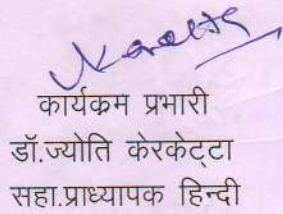 कार्यक्रम प्रभारी
डॉ.ज्योति केरकेट्टा
सहा.प्राध्यापक हिन्दी